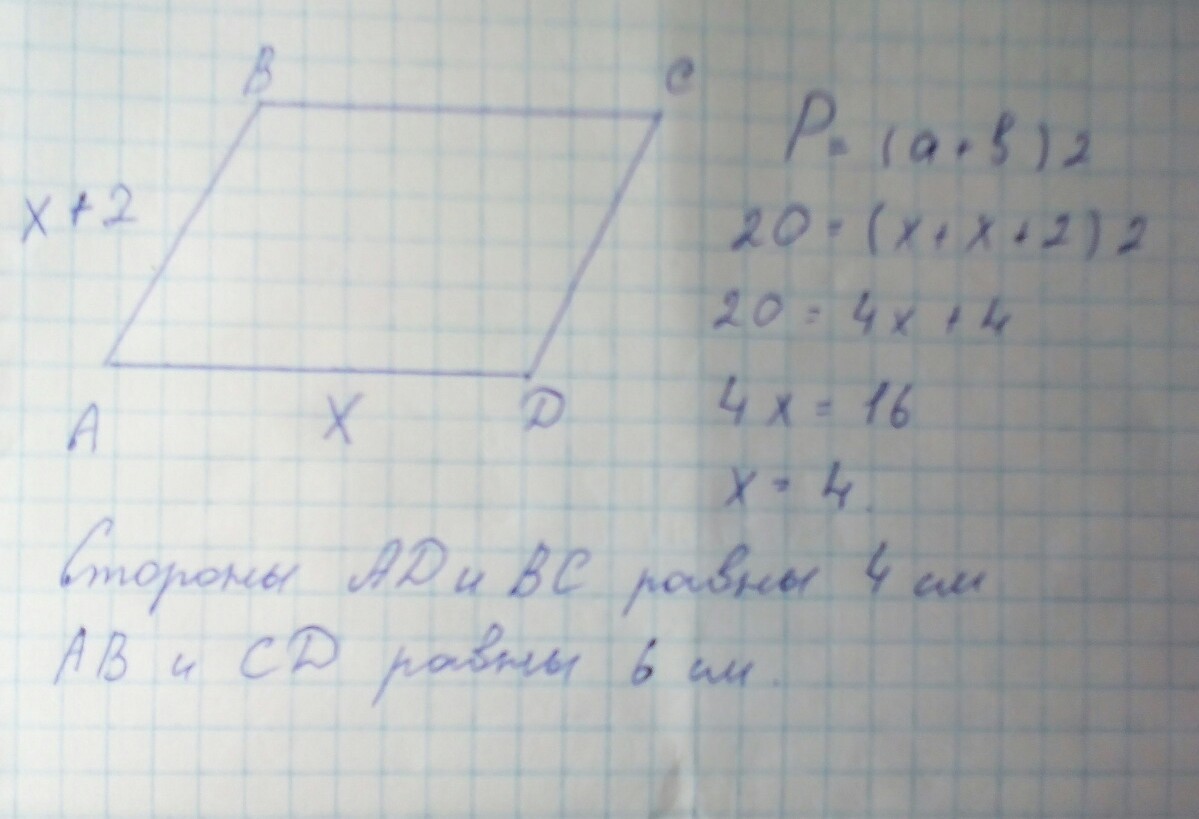 B
C
x + 2
A
X
D
P = (a + b) 2
20 = (x + x + 2) 2
20 = 4x + 4
4x = 16
x = 4.
Стороны AD и BC равны 4 см
AB и CD равны 6 см.